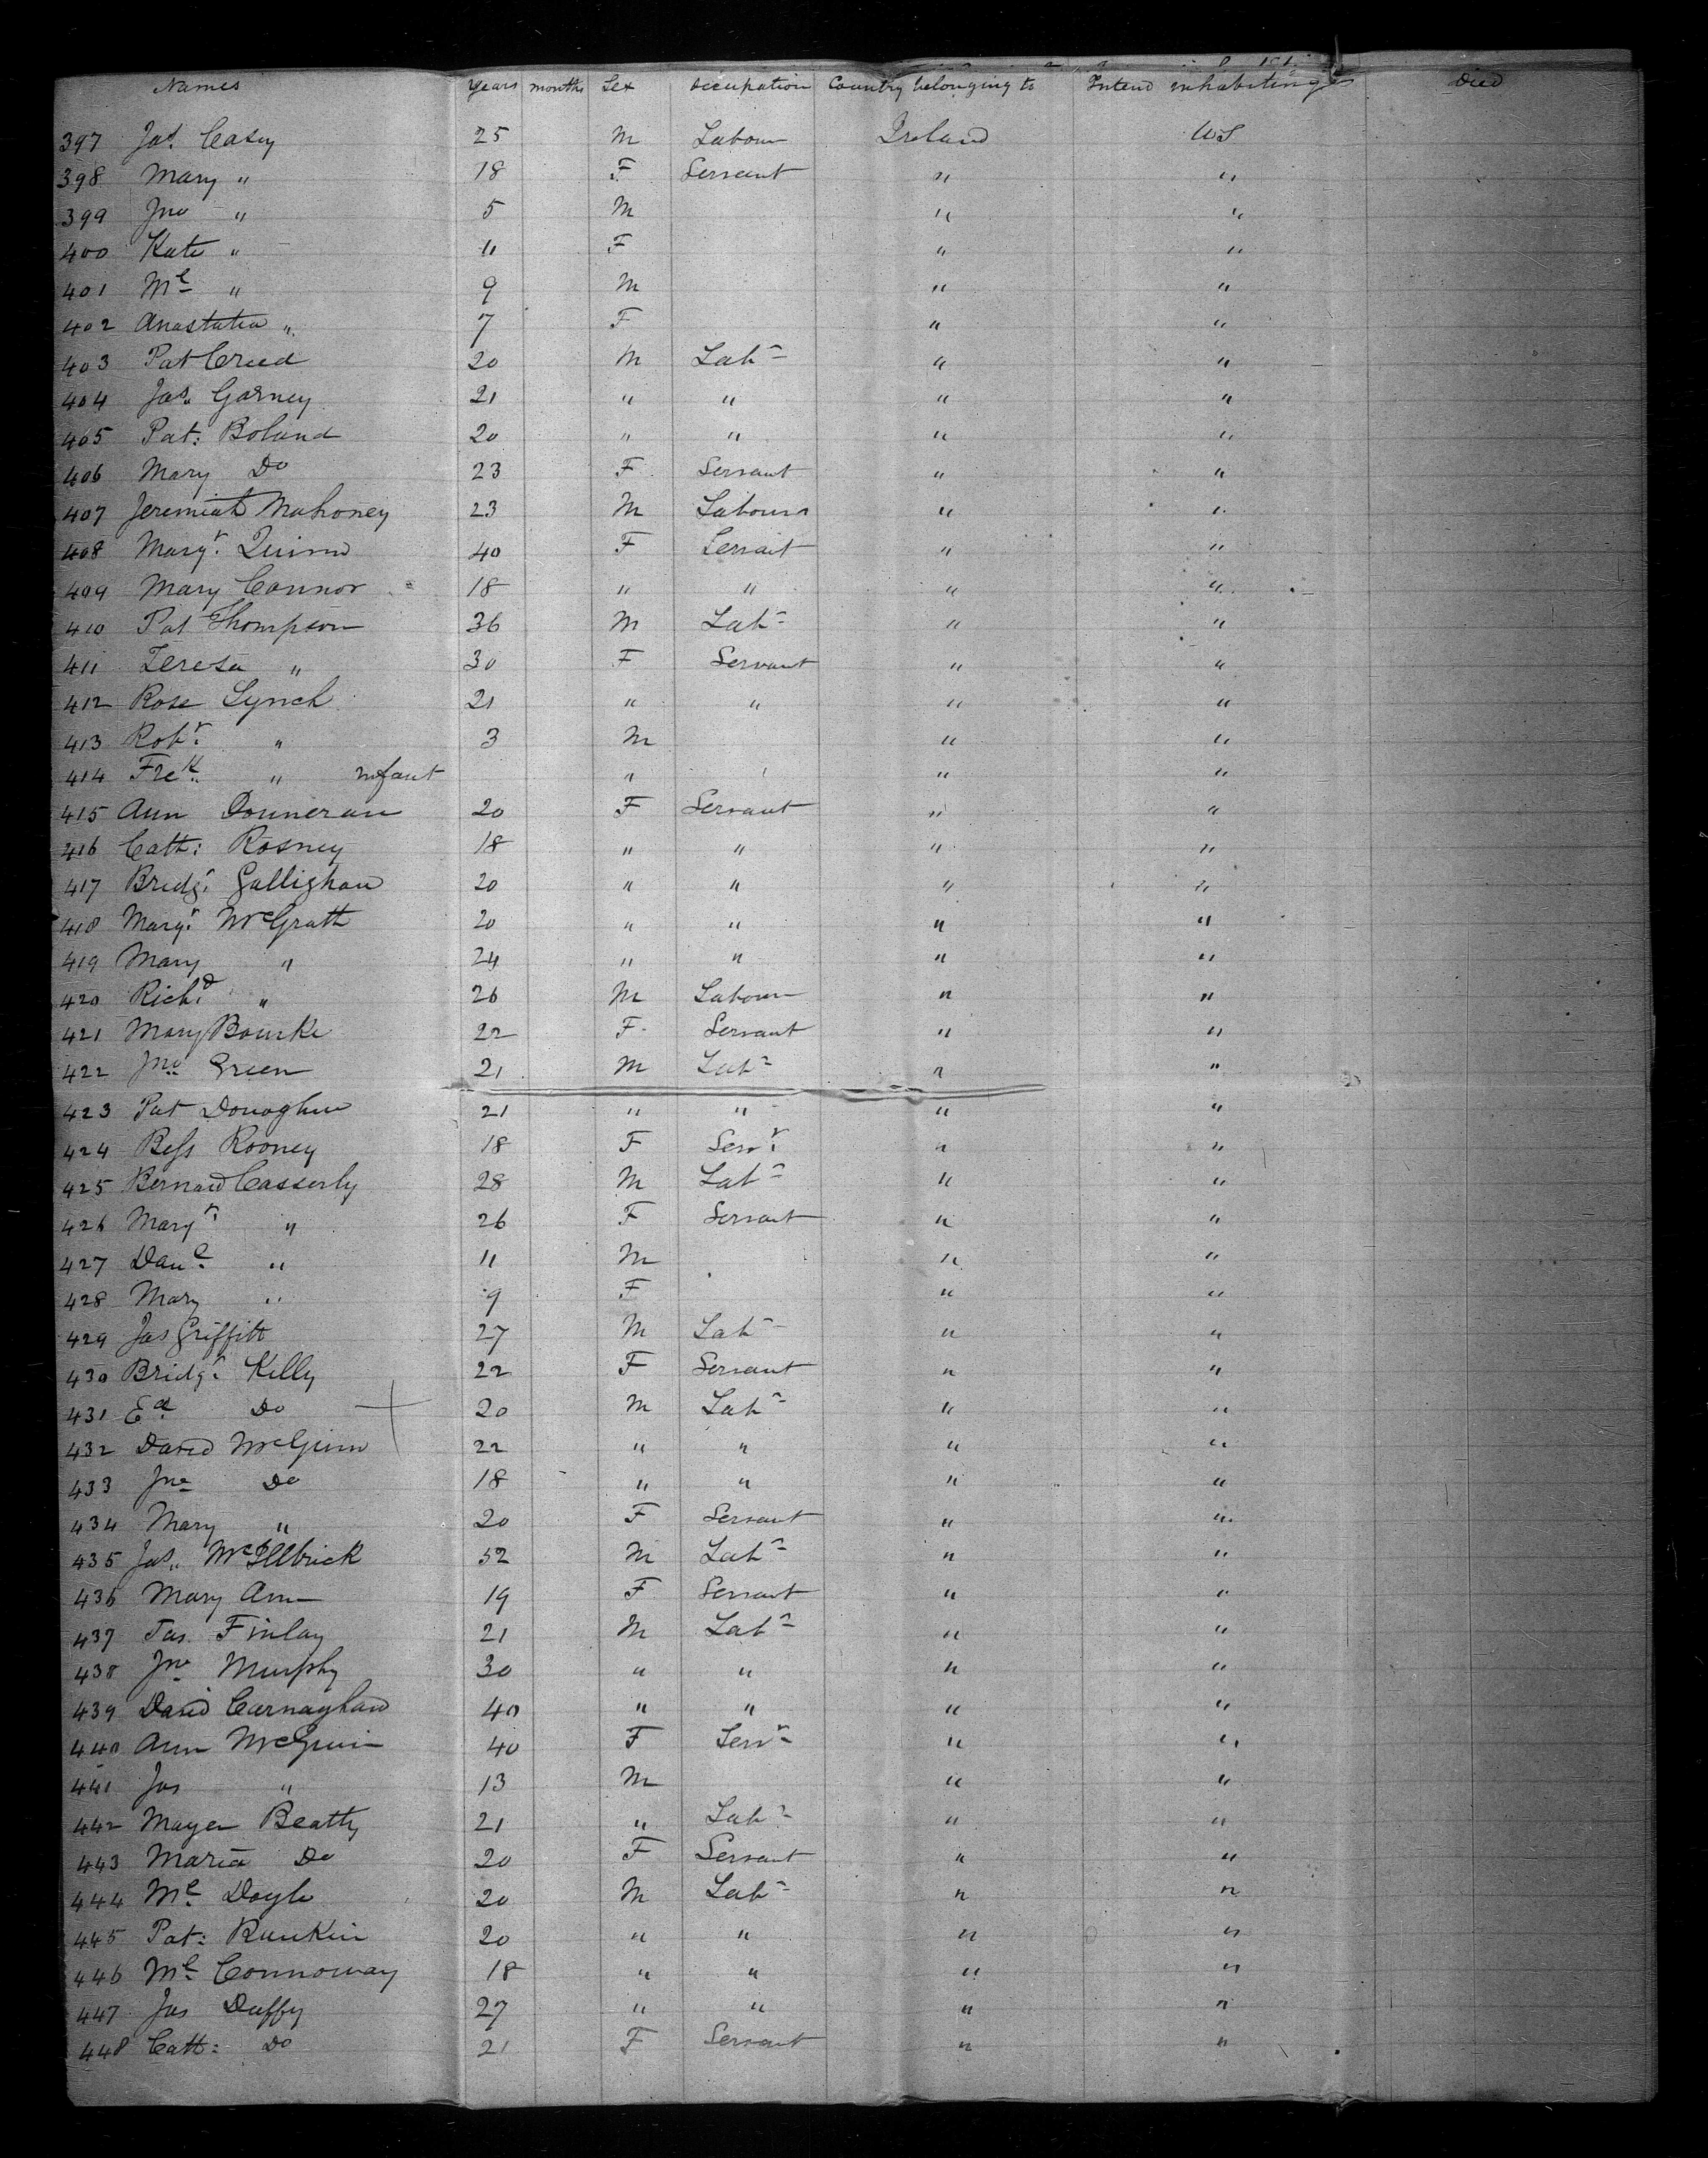 Names Years months Sex Occupation Country belonging to Intend inhabiting Died
397 Jas. Casey 25 M Labour Ireland US
398 Mary " 18 F Servant " "
399 Jno " 5 M " "
400 Kate " 11 F " "
401 Ml " 9 M " "
402 Anastatia " 7 F " "
403 Pat Creed 20 M Labr " "
404 Jas. Gorney 21 " " " "
405 Pat: Boland 20 " " " "
406 Mary Do 23 F Servant " "
407 Jeremiah Mahoney 23 M Labourer " "
408 Margt. Quinn 40 F Servant " "
409 Mary Connor 18 " " " "
410 Pat Thompson 36 M Labr " "
411 Teresa " 30 F Servant " "
412 Rose Lynch 21 " " " "
413 Robt. " 3 M " "
414 Fredk. " infant " " "
415 Ann Donneran 20 F Servant " "
416 Cath: Rosney 18 " " " "
417 Bridgt. Gallighan 20 " " " "
418 Margt. McGrath 20 " " " "
419 Mary " 24 " " " "
420 Richd. " 26 M Labour " "
421 Mary Bourke 22 F Servant " "
422 Jno Green 21 M Labr " "
423 Pat Donoghue 21 " " " "
424 Bess Rooney 18 F Servt. " "
425 Bernard Casserly 28 M Labr " "
426 Margt. " 26 F Servant " "
427 Danl. " 11 M " "
428 Mary " 9 F " "
429 Jas Griffith 27 M Labr " "
430 Bridgt. Kelly 22 F Servant " "
431 Ed. Do 20 M Labr " "
432 David McGinn 22 " " " "
433 Jno Do 18 " " " "
434 Mary " 20 F Servant " "
435 Jas. 52 M Labr " "
436 Mary Ann 19 F Servant " "
437 Jas. Finlay 21 M Labr " "
438 Jno Murphy 30 " " " "
439 David Carnaghan 40 " " " "
440 Ann McGinn 40 F Servt " "
441 Jas " 13 M " "
442 Beatty 21 " Labr " "
443 Maria Do 20 F Servant " "
444 Ml Doyle 20 M Labr " "
445 Pat: Rankin 20 " " " "
446 Ml Connoway 18 " " " "
447 Jas Duffy 27 " " " "
448 Cath: Do 21 F Servant " "